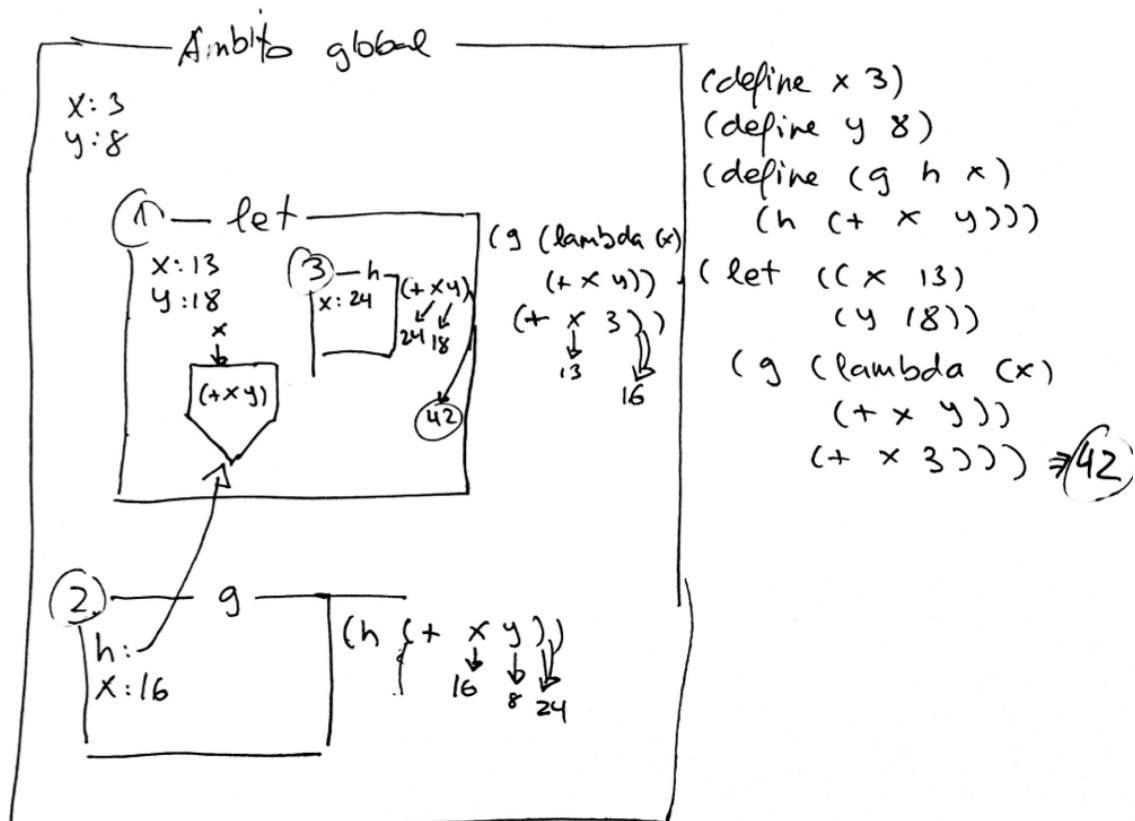 Ámbito global
x: 3
y: 8
1 let
x: 13
y: 18
x
(+ x y)
3 h
x: 24
(+ x y)
24 18
42
(g (lambda (x)
(+ x y))
(+ x 3))
13
16
2 g
h:
x: 16
(h (+ x y))
16 8 24
(define x 3)
(define y 8)
(define (g h x)
(h (+ x y)))
(let ((x 13)
(y 18))
(g (lambda (x)
(+ x y))
(+ x 3)))) ⇒ 42